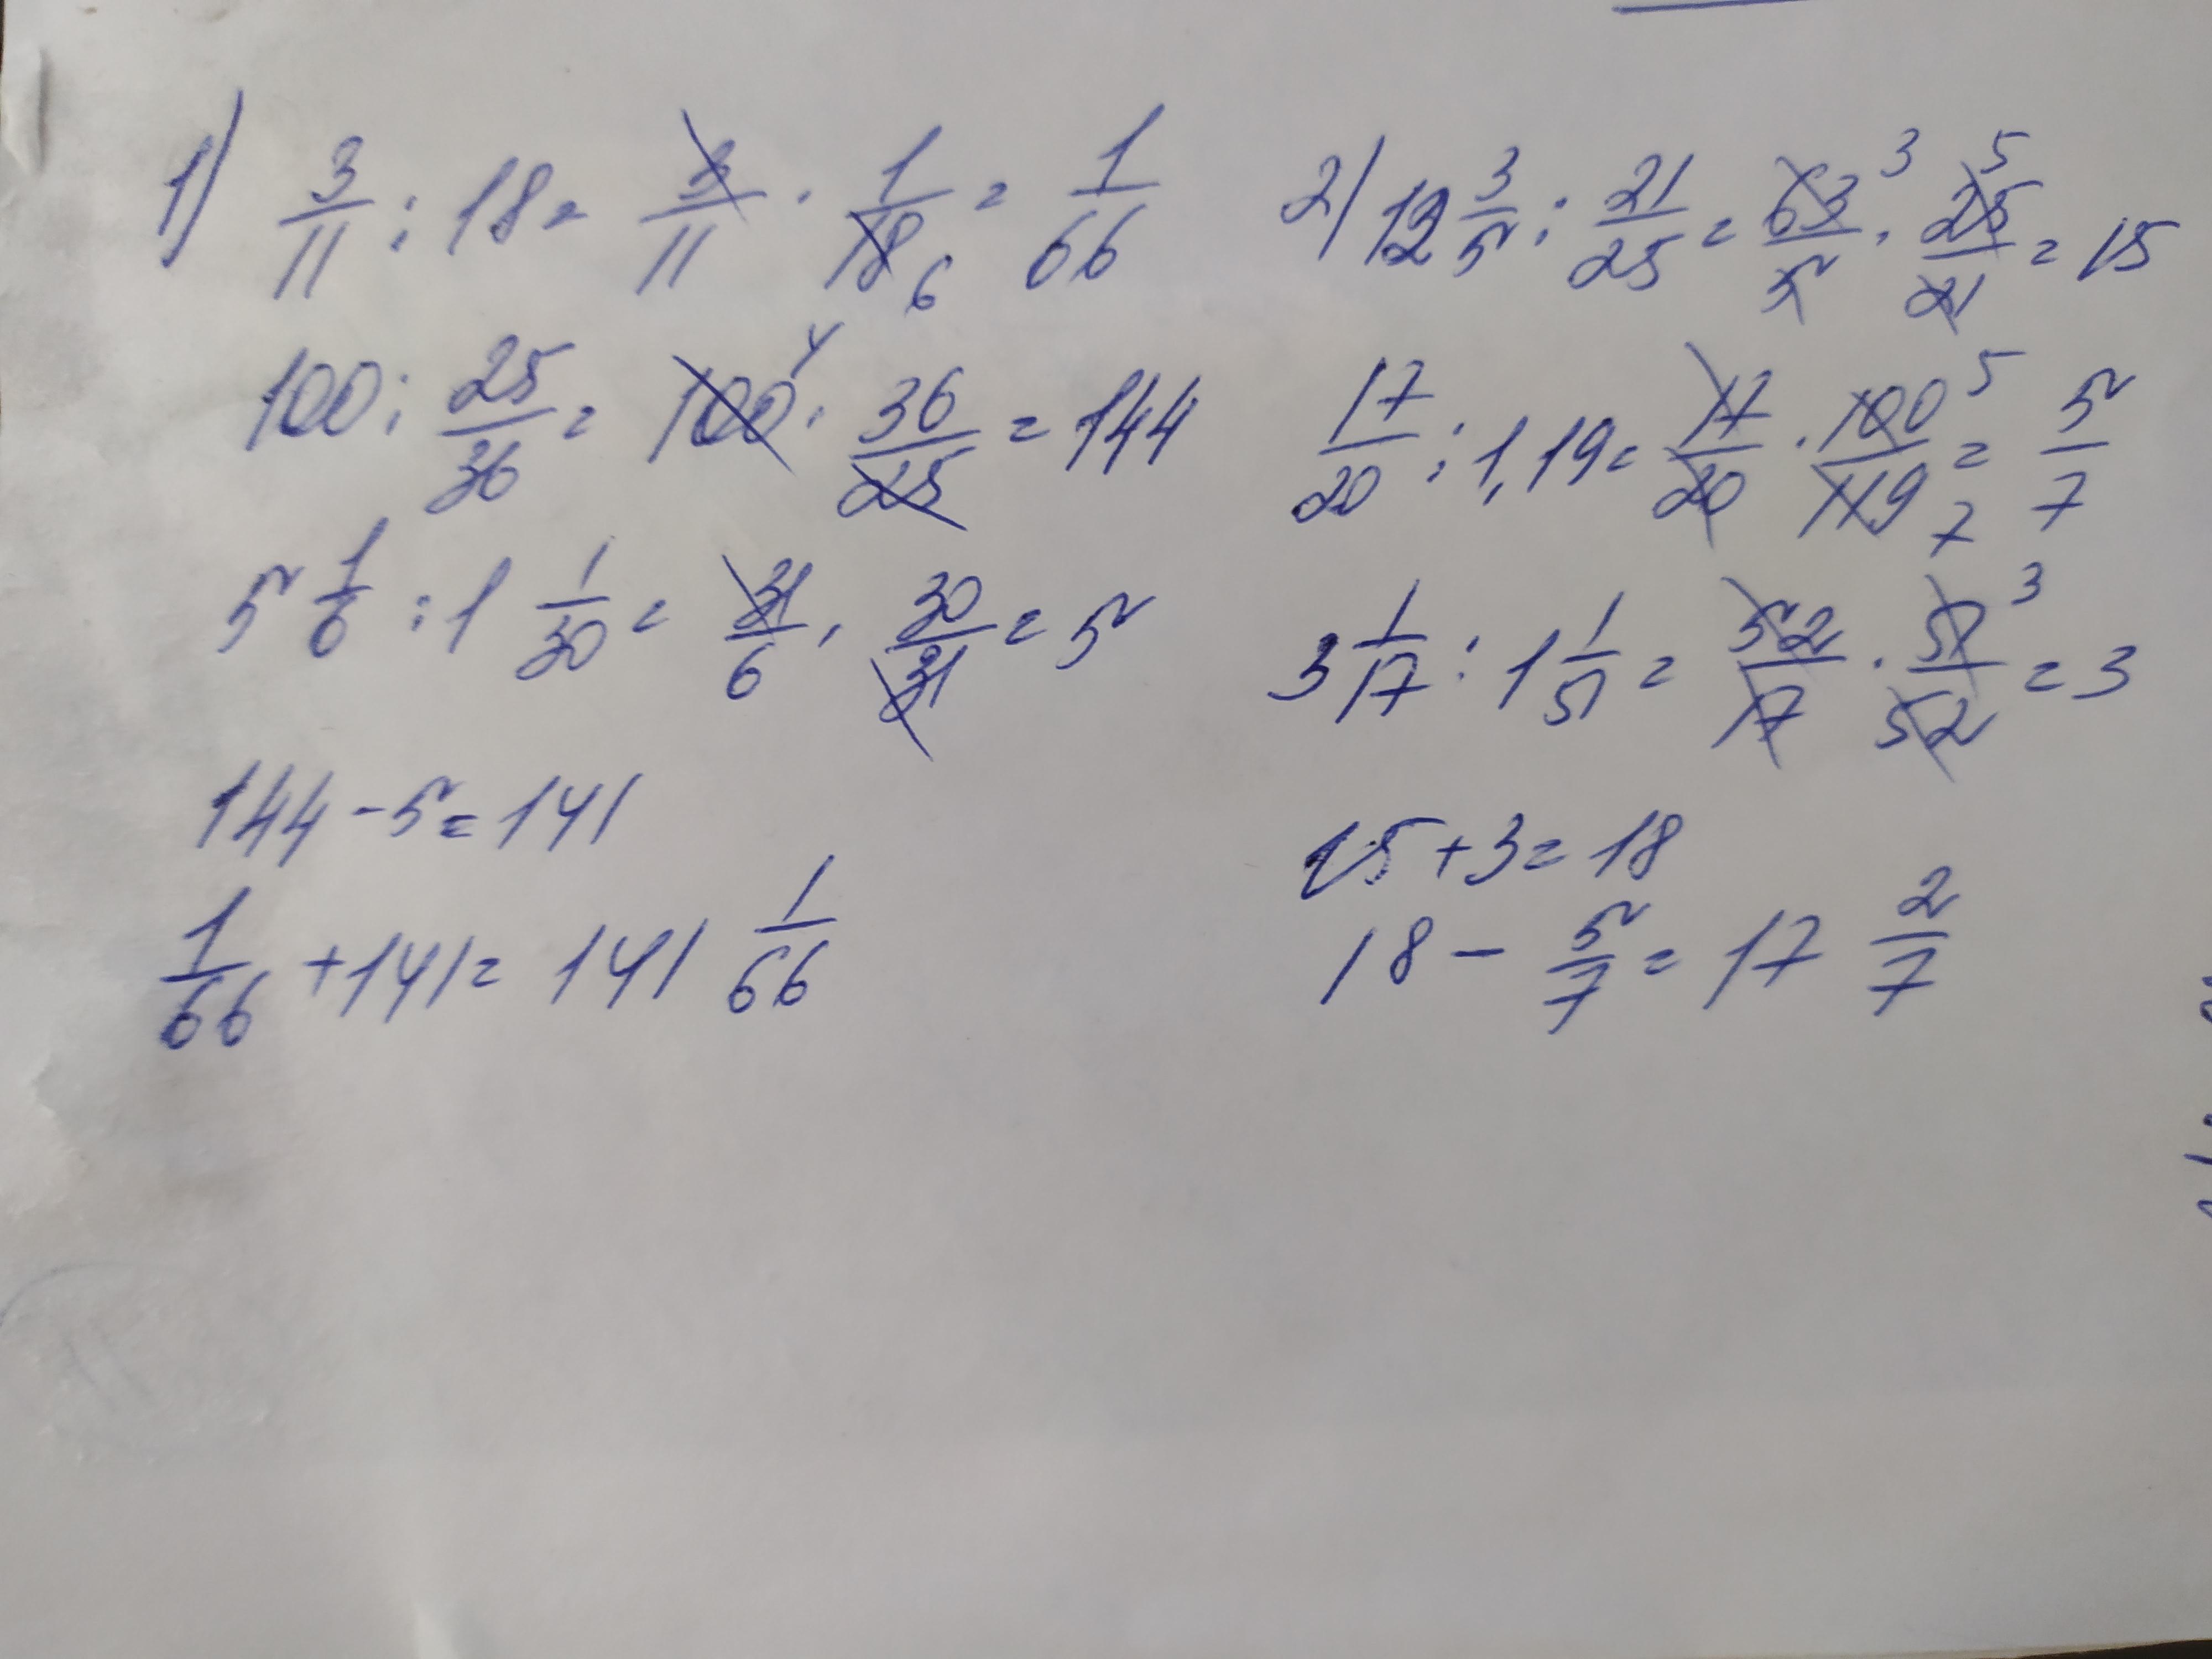 1) 3/11 : 18 = 3/11 · 1/18 6 = 1/66
100 : 25/36 = 100 4 · 36/25 = 144
5 1/6 : 1 1/30 = 31/6 · 30/31 = 5
144 - 5 = 141
1/66 + 141 = 141 1/66
2) 12 3/5 : 21/25 = 63 3/5 · 25 5/21 = 15
17/20 : 1,19 = 17/20 · 100 5/119 7 = 5/7
3 1/17 : 1 1/51 = 52/17 · 51 3/52 = 3
15 + 3 = 18
18 - 5/7 = 17 2/7